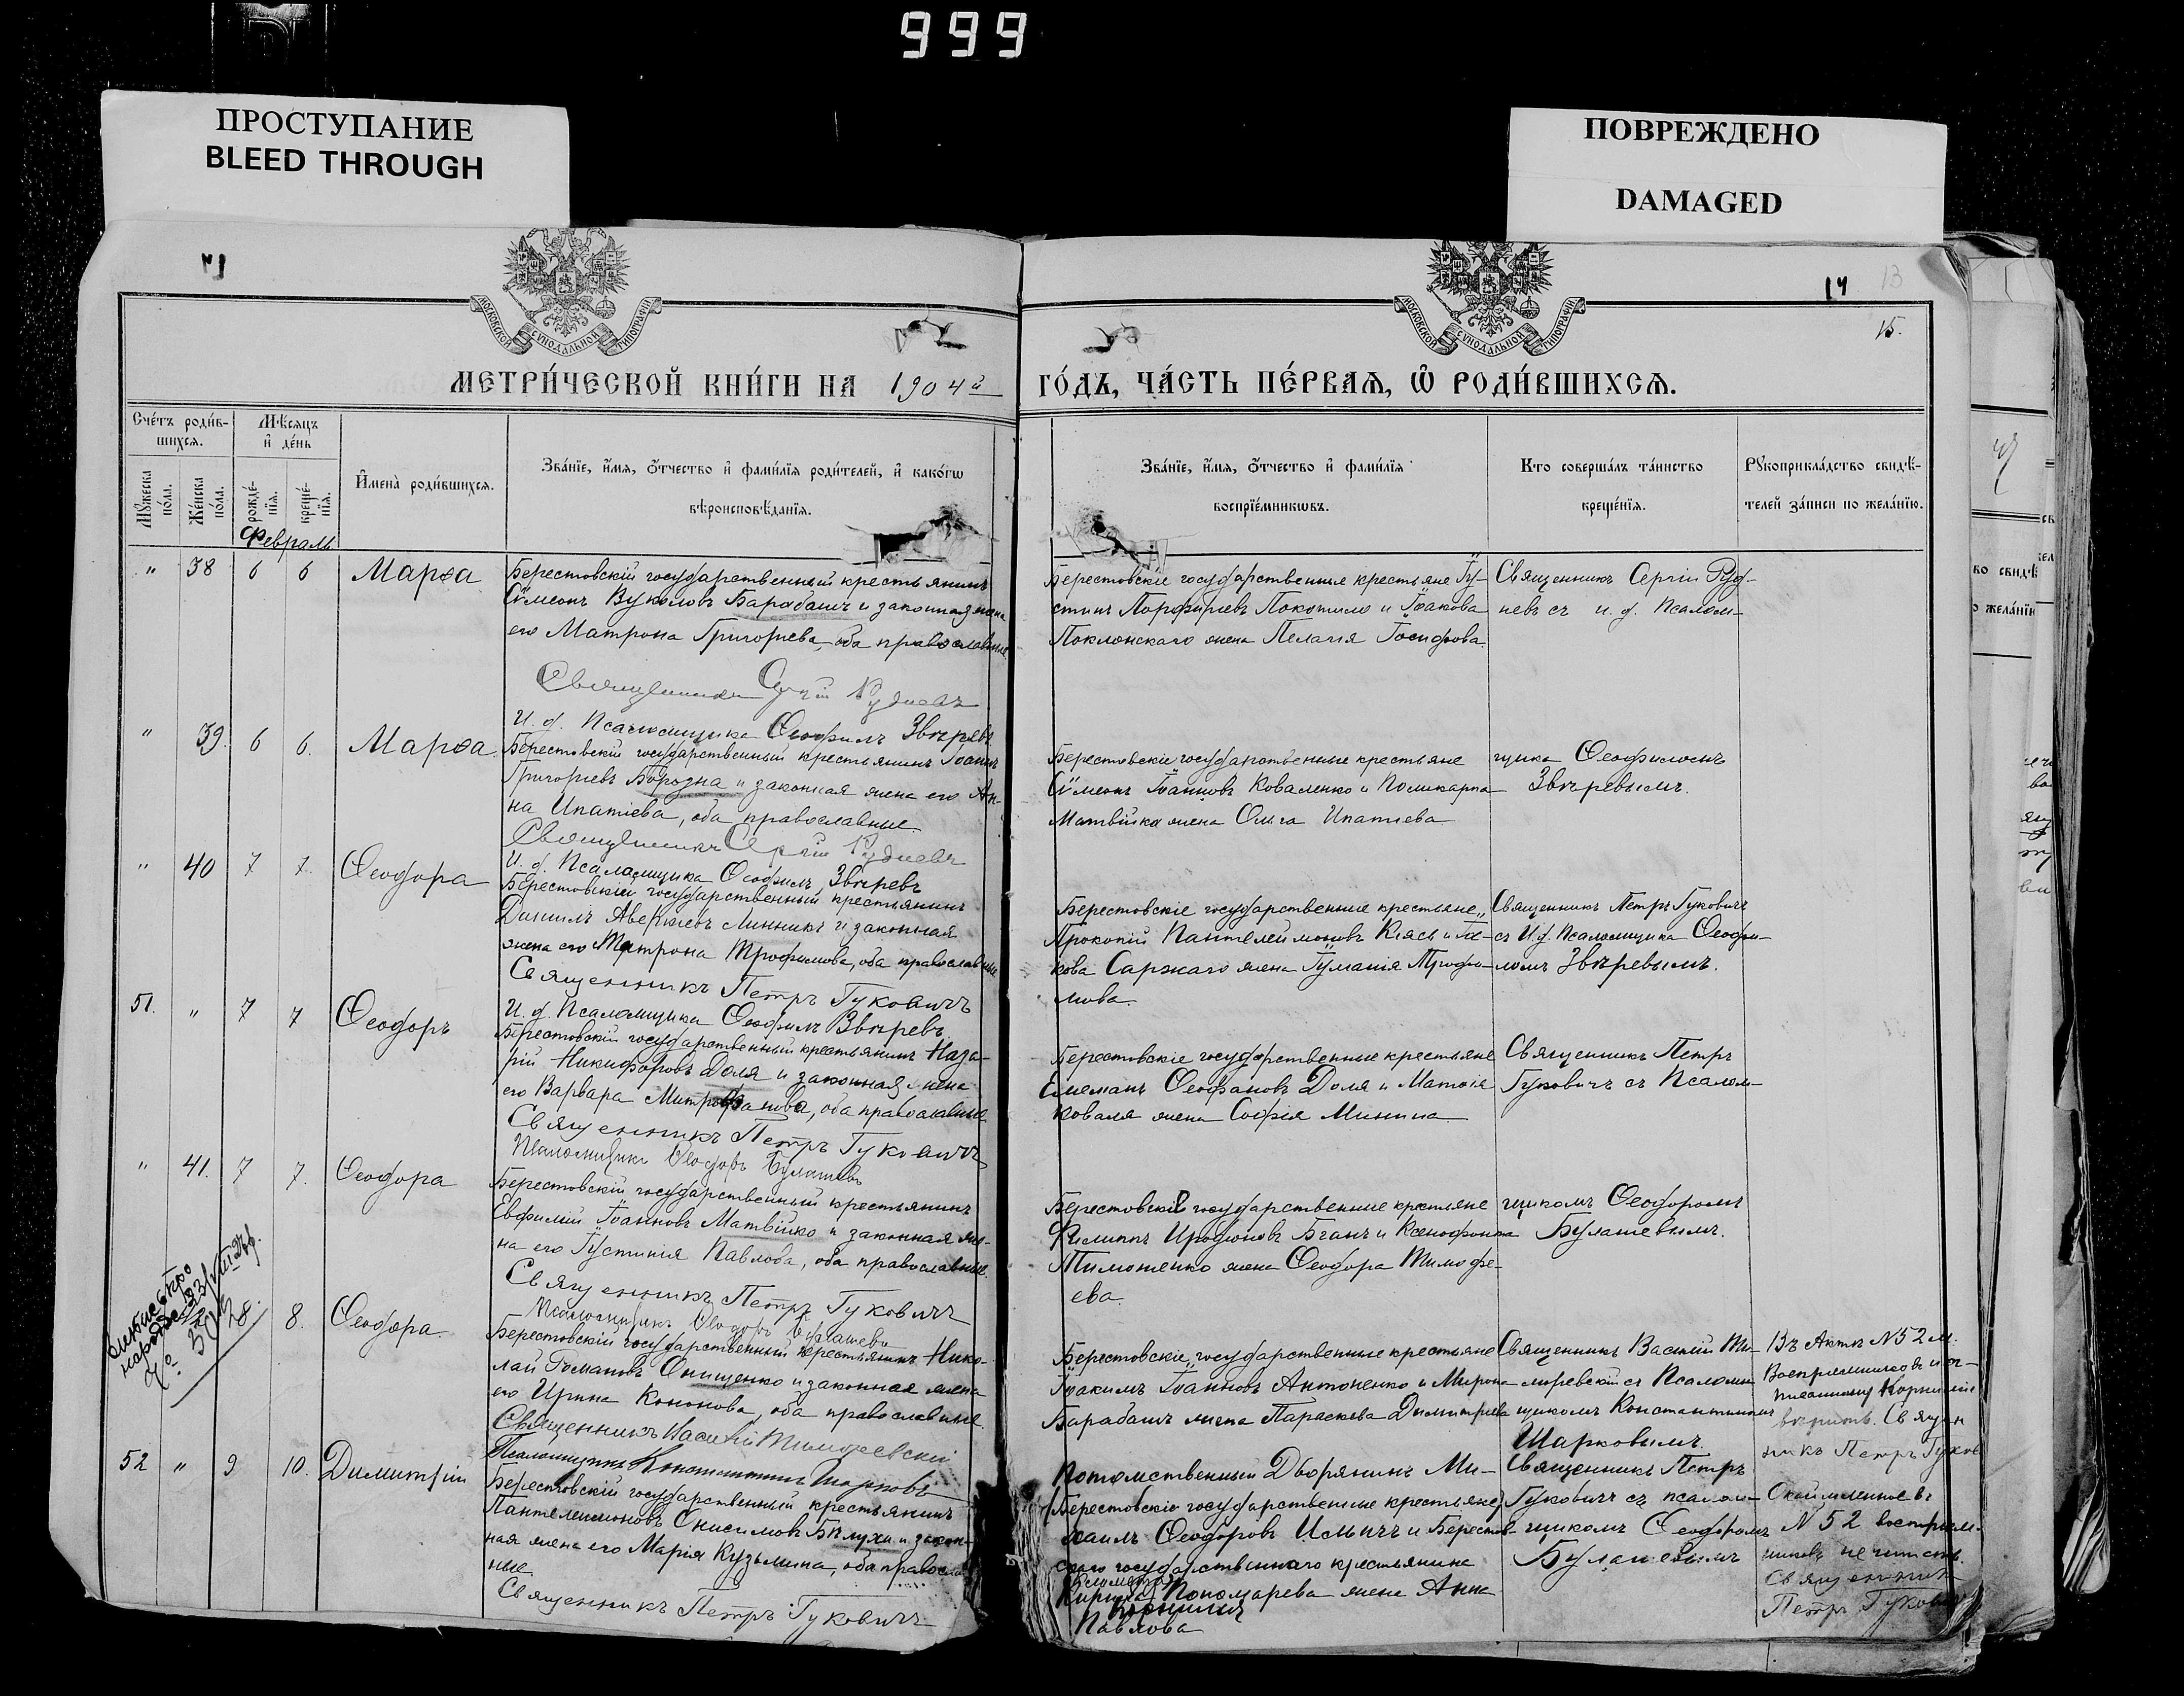 999
ПРОСТУПАНИЕ
BLEED THROUGH
ПОВРЕЖДЕНО
DAMAGED
14 13
15.
МОСКОВСКОЙ СУНОДАЛЬНОЙ ТИПОГРАФІИ
МОСКОВСКОЙ СУНОДАЛЬНОЙ ТИПОГРАФІИ
МЕТРИ́ЧЕСКОЙ КНИ́ГИ НА 1904й ГО́ДЪ, ЧА́СТЬ ПЕ́РВАѦ, Ѡ РОДИ́ВШИХСѦ.
Сче́тъ роди́в-
шихсѧ.
Мѣ́сѧцъ
и де́нь
Мꙋ́жеска
по́ла.
Же́нска
по́ла.
рожде́-
нїѧ.
креще́-
нїѧ.
Имена̀ роди́вшихсѧ.
Зва́нїе, и́мѧ, о́тчество и фами́лїѧ роди́телей, и како́гѡ
вѣроисповѣ́данїѧ.
Зва́нїе, и́мѧ, о́тчество и фами́лїѧ
воспрїе́мникѡвъ.
Кто соверша́лъ та́инство
креще́нїѧ.
Рꙋкоприкла́дство свидѣ́-
телей за́писи по жела́нїю.
Февраль
" 38 6 6 Марѳа
Берестовскій государственный крестьянинъ
Сѵмеонъ Вуколовъ Барабашъ и законная жена
его Матрона Григорьева, оба православные.
Священникъ Сергій Рудневъ
И. д. Псаломщика Ѳеофилъ Звѣревъ
Берестовскіе государственные крестьяне Іу-
стинъ Порфирьевъ Покотило и Іоакова
Поклонскаго жена Пелагія Іосифова.
Священникъ Сергій Руд-
невъ съ и. д. Псалом-
" 39. 6 6. Марѳа
Берестовскій государственный крестьянинъ Іоаннъ
Григорьевъ Бородна и законная жена его Ан-
на Ипатіева, оба православные.
Священникъ Сергій Рудневъ
И. д. Псаломщика Ѳеофилъ Звѣревъ
Берестовскіе государственные крестьяне
Сѵмеонъ Іоанновъ Коваленко и Поликарпа
Матвійка жена Ольга Ипатіева
щика Ѳеофиломъ
Звѣревымъ.
" 40 7 7. Ѳеодора
Берестовскій государственный крестьянинъ
Даніилъ Аверкіевъ Линникъ и законная
жена его Матрона Трофимова, оба православные
Священникъ Петръ Гуковичъ
И. д. Псаломщика Ѳеофилъ Звѣревъ
Берестовскіе государственные крестьяне
Прокопій Пантелеймоновъ Князь и Іа-
кова Саржаго жена Іуліанія Трофи-
мова.
Священникъ Петръ Гуковичъ
съ И. д. Псаломщика Ѳеофи-
ломъ Звѣревымъ.
51. " 7 7 Ѳеодоръ
Берестовскій государственный крестьянинъ Наза-
рій Никифоровъ Доля и законная жена
его Варвара Митрофанова, оба православные
Священникъ Петръ Гуковичъ
Псаломщикъ Ѳеодоръ Булашевъ
Берестовскіе государственные крестьяне
Емеліанъ Ѳеофановъ Доля и Матѳія
Коваля жена Софія Минина
Священникъ Петръ
Гуковичъ съ Псалом-
" 41. 7 7. Ѳеодора
Берестовскій государственный крестьянинъ
Евфимій Іоанновъ Матвійко и законная же-
на его Іустинія Павлова, оба православные.
Священникъ Петръ Гуковичъ
Псаломщикъ Ѳеодоръ Булашевъ
Берестовскіе государственные крестьяне
Филиппъ Иродіоновъ Бганъ и Ксенофонта
Тимошенко жена Ѳеодора Тимофе-
ева.
щикомъ Ѳеодоромъ
Булашевымъ.
8. Ѳеодора.
Берестовскій государственный крестьянинъ Нико-
лай Романовъ Онищенко и законная жена
его Ирина Кононова, оба православные.
Священникъ Василій Тиморевскій
Псаломщикъ Константинъ Шарковъ
Берестовскіе государственные крестьяне
Іоакимъ Іоанновъ Антоненко и Мирона
Барабашъ жена Параскева Димитріева
Священникъ Василій Ти-
моревскій съ Псалом-
щикомъ Константиномъ
Шарковымъ.
Въ Актѣ N 52 м.
Воспріемниковъ
Корнилій
вѣрить. Священ
никъ Петръ Гуков
52 " 9 10. Димитрій
Берестовскій государственный крестьянинъ
Пантелеимоновъ Онисимовъ Бѣлуха и закон-
ная жена его Марія Кузьмина, оба православ-
ные.
Священникъ Петръ Гуковичъ
Потомственный Дворянинъ Ми-
(Берестовскіе государственные крестьяне)
хаилъ Ѳеодоровъ Ильичъ и Берестов-
скаго государственнаго крестьянина
Кирилла Пономарева жена Анна
Корнилія
Павлова
Священникъ Петръ
Гуковичъ съ псалом-
щикомъ Ѳеодоромъ
Булашевымъ
N 52 воспріем-
никовъ не читать.
Священник
Петръ Гукови